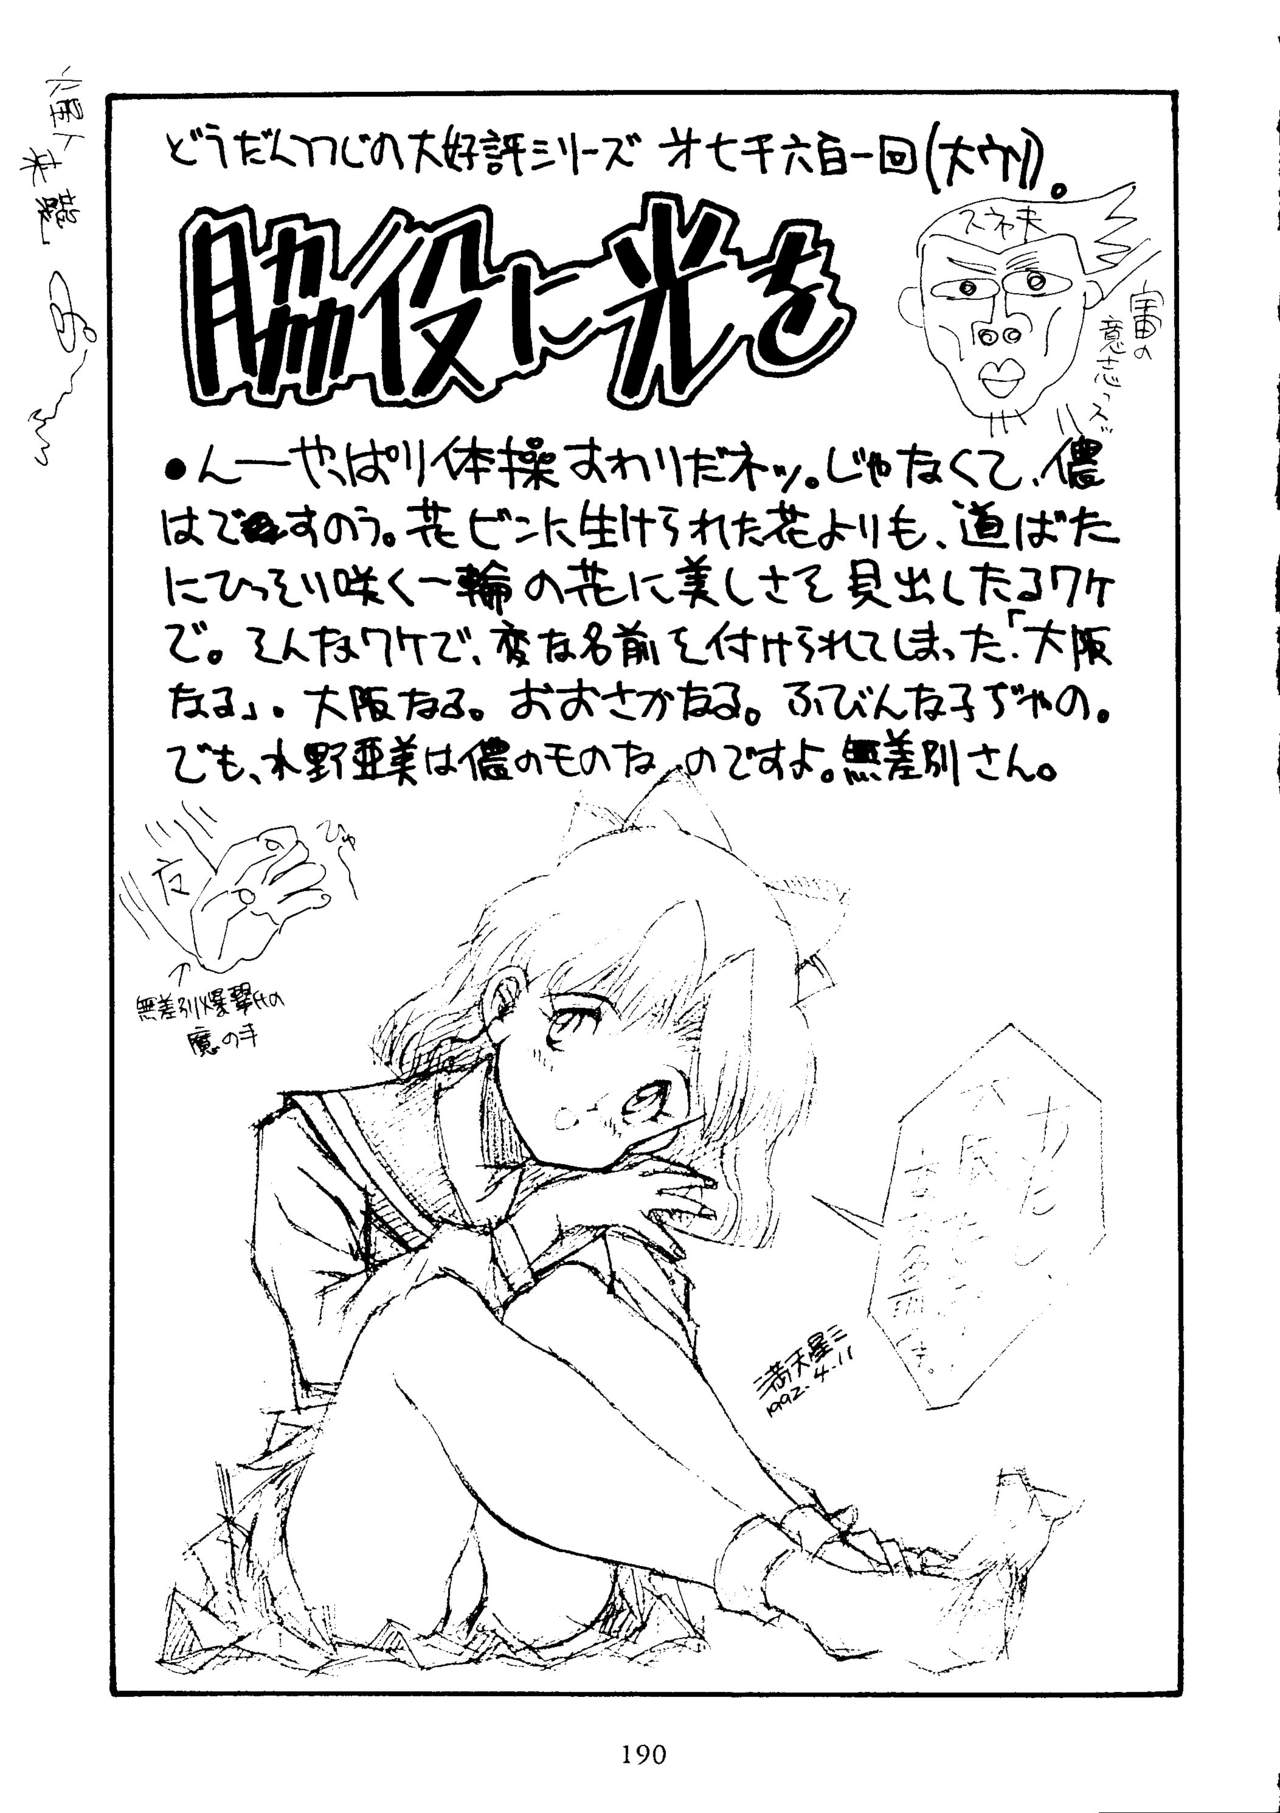 火星人来襲
どうだんつつじの大好評シリーズ 才七千六百一回(大ウソ)。
脇役に光を
スネ夫
宇宙の
意志っズ
●んーやっぱり体操すわりだネッ。じゃなくて、儂
はですのう。花ビンに生けられた花よりも、道ばた
にひっそり咲く一輪の花に美しさを見出したるワケ
で。そんなワケで、変な名前を付けられてしまった「大阪
なる」。大阪なる。おおさかなる。ふびんな子ぢゃの。
でも、水野亜美は儂のものなのですよ。無差別さん。
ひゅー
無差別爆撃氏の
魔の手
わたし、
満天星三
1992.4.11
190